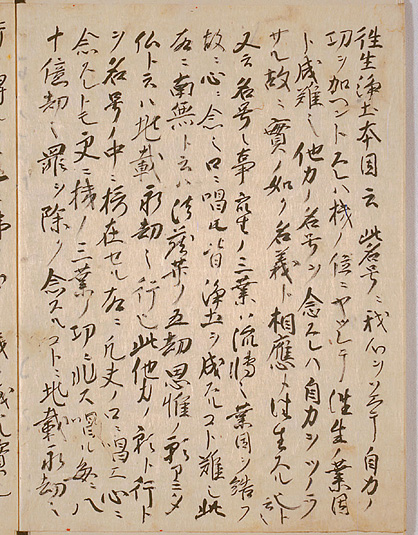 往生浄土本因云此名号ニ我心ンソヘテ自力ノ
功ン加ヘントスレハ機ノ位ニヤツシテ往生ノ業因
ト成難シ他力ノ名号ン念スレハ自力ンツノラ
サル故ニ實ノ如ク名義ト相應シ往生スル也ト云々
又云名号ノ事衆生ノ三業ハ流轉ノ業因ン結フ
故ニ心ニ念シ口ニ唱ルモ皆浄土ン成スルコト難シ此
故ニ南無ト云ハ法蔵菩薩ノ五劫思惟ノ願ヲミタ
仏ト云ハ兆載永劫ノ行也此他力ノ願ト行ト
ン名号ノ中ニ摂在セル故ニ凡夫ノ口ニ唱ヘ心ニ
念スレトモ更ニ機ノ三業ノ功ニ非ス唱ル毎ニ八
十億劫ノ罪ン除ク念スルコトニ兆載永劫ノ